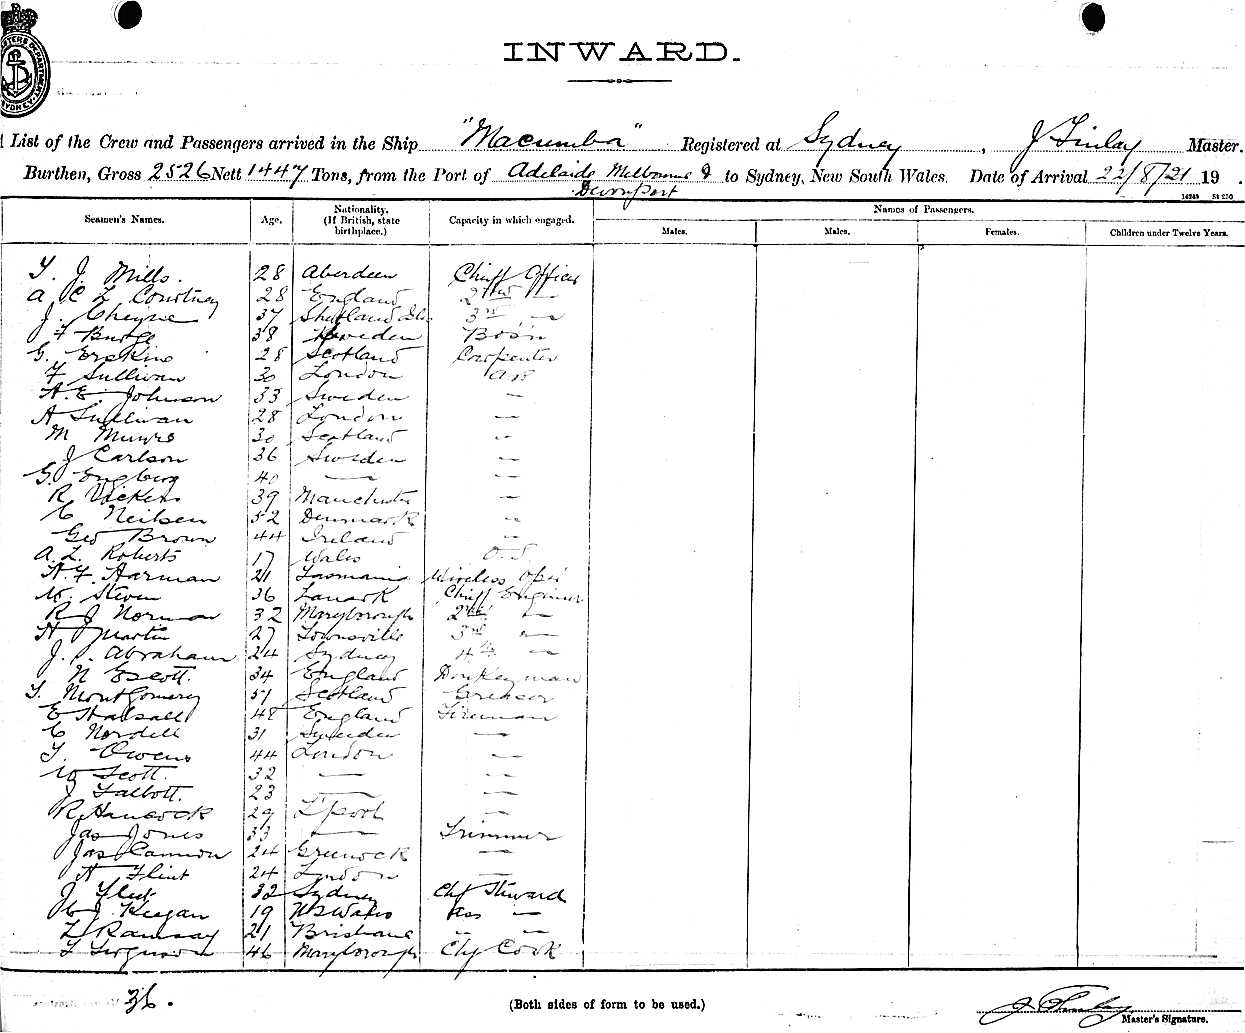 INWARD.
List of the Crew and Passengers arrived in the Ship "Macumba" Registered at Sydney, J Finlay Master.
Burthen, Gross 2526 Nett 1447 Tons, from the Port of Adelaide Melbourne & Devonport to Sydney, New South Wales. Date of Arrival 22/8/21 19 .
Seamen's Names. Age. Nationality. (If British, state birthplace.) Capacity in which engaged. Names of Passengers.
Males. Males. Females. Children under Twelve Years.
T. J. Mills. 28 Aberdeen Chief Officer
A C L Courtney 28 England 2nd —
J. Cheyne 37 Shetland Isles 3rd —
F Burge 38 Sweden Bos'n
G. Erskine 28 Scotland Carpenter
F Sullivan 30 London AB
A. E. Johnson 33 Sweden —
A Sullivan 28 London —
M Munro 30 Scotland —
J Carlson 36 Sweden —
G. Engberg 40 — —
R Vickers 39 Manchester —
C Neilsen 52 Denmark —
Geo Brown 44 Ireland —
A. L. Roberts 17 Wales O.S.
A. F. Harman 21 Tasmania Wireless Opr
W. Steven 36 Lanark Chief Engineer
R J Norman 32 Maryborough 2nd —
H Martin 27 Townsville 3rd —
J. Abraham 24 Sydney 4th —
N Escott. 34 England Donkeyman
T. Montgomery 51 Scotland Greaser
E Halsall 48 England Fireman
C Nordell 31 Sweden —
T. Owens 44 London —
W Scott. 32 — —
J Talbott. 23 — —
R Hancock 29 L'pool —
Jas Jones 33 — Trimmer
Jas Cannon 24 Greenock —
A Flint 24 London —
J 32 Sydney Chf Steward
J. Keegan 19 N S Wales Ass —
L Ramsay 21 Brisbane — —
Ferguson 46 Maryborough Chf Cook
36.
(Both sides of form to be used.)
J Finlay
Master's Signature.